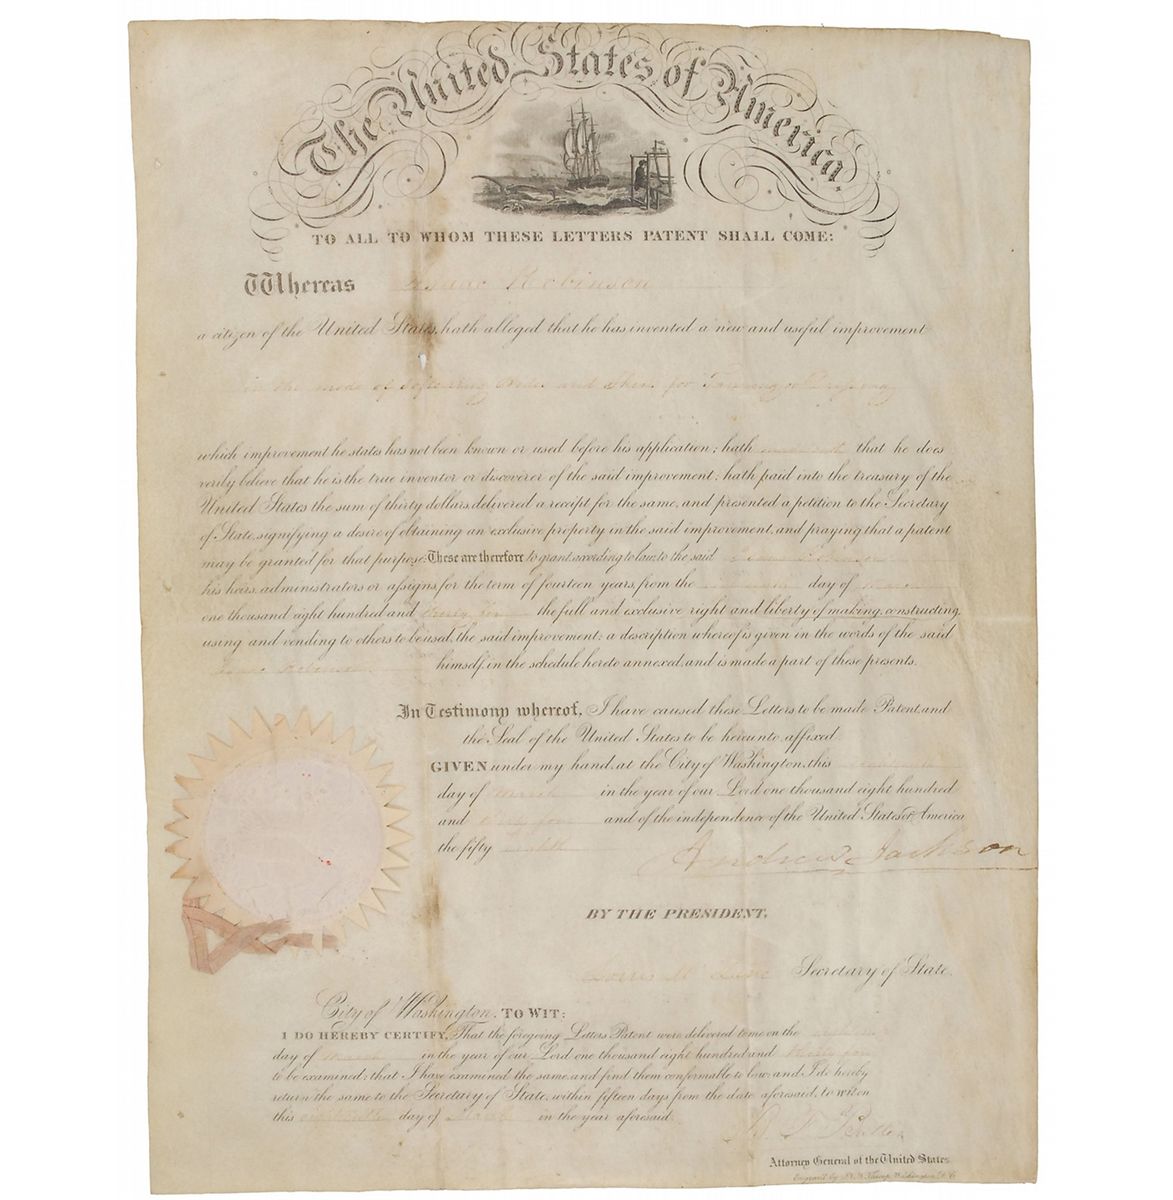 The United States of America.
TO ALL TO WHOM THESE LETTERS PATENT SHALL COME:
Whereas Isaac Robinson
a citizen of the United States, hath alleged that he has invented a new and useful improvement
in the mode of Softening Hides and Skins for Tanning or Dressing
which improvement he states has not been known or used before his application; hath made oath that he does
verily believe that he is the true inventor or discoverer of the said improvement; hath paid into the treasury of the
United States the sum of thirty dollars, delivered a receipt for the same, and presented a petition to the Secretary
of State, signifying a desire of obtaining an exclusive property in the said improvement, and praying that a patent
may be granted for that purpose: These are therefore to grant, according to law, to the said Isaac Robinson
his heirs, administrators or assigns, for the term of fourteen years, from the day of
one thousand eight hundred and thirty four the full and exclusive right and liberty of making, constructing,
using and vending to others to be used, the said improvement; a description whereof is given in the words of the said
Isaac Robinson himself, in the schedule hereto annexed, and is made a part of these presents.
In Testimony whereof, I have caused these Letters to be made Patent, and
the Seal of the United States to be hereunto affixed.
GIVEN under my hand, at the City of Washington, this
day of March in the year of our Lord one thousand eight hundred
and thirty four and of the independence of the United States of America
the fifty eighth
Andrew Jackson
BY THE PRESIDENT,
Louis McLane Secretary of State.
City of Washington, TO WIT:
I DO HEREBY CERTIFY, That the foregoing Letters Patent were delivered to me on the
day of March in the year of our Lord one thousand eight hundred and thirty four
to be examined; that I have examined the same, and find them conformable to law; and I do hereby
return the same to the Secretary of State, within fifteen days from the date aforesaid, to wit: on
this eighteenth day of March in the year aforesaid.
B F Butler
Attorney General of the United States
Engraved by Washington, D.C.